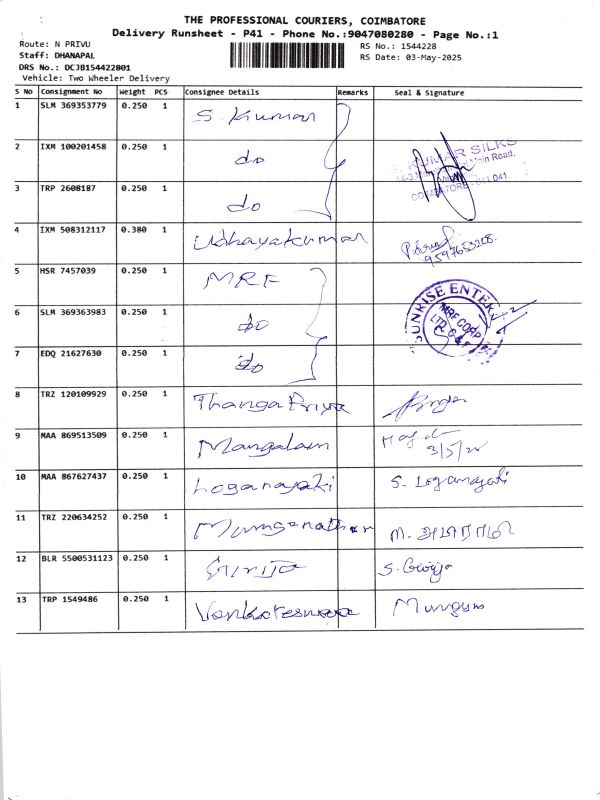 THE PROFESSIONAL COURIERS, COIMBATORE
Delivery Runsheet - P41 - Phone No.:9047080280 - Page No.:1
Route: N PRIVU
Staff: DHANAPAL
DRS No.: DCJB154422801
Vehicle: Two Wheeler Delivery
RS No.: 1544228
RS Date: 03-May-2025
S No Consignment No Weight PCS Consignee Details Remarks Seal & Signature
1 SLM 369353779 0.250 1 S. Kumar
2 IXM 100201458 0.250 1 do
S. KUMAR SILKS
Main Road,
COIMBATORE - 641 041.
3 TRP 2608187 0.250 1 do
4 IXM 508312117 0.380 1 Udhayakumar
9597653208.
5 HSR 7457039 0.250 1 MRF
6 SLM 369363983 0.250 1 do
SUNRISE
MRF CORP
LTD. C & F
7 EDQ 21627630 0.250 1 do
8 TRZ 120109929 0.250 1 ThangaPriya
9 MAA 869513509 0.250 1 Mangalam
10 MAA 867627437 0.250 1 Loganayaki S. Loganayaki
11 TRZ 220634252 0.250 1 M.
12 BLR 5500531123 0.250 1 S. Girija
13 TRP 1549486 0.250 1 Venkateswara Murugan